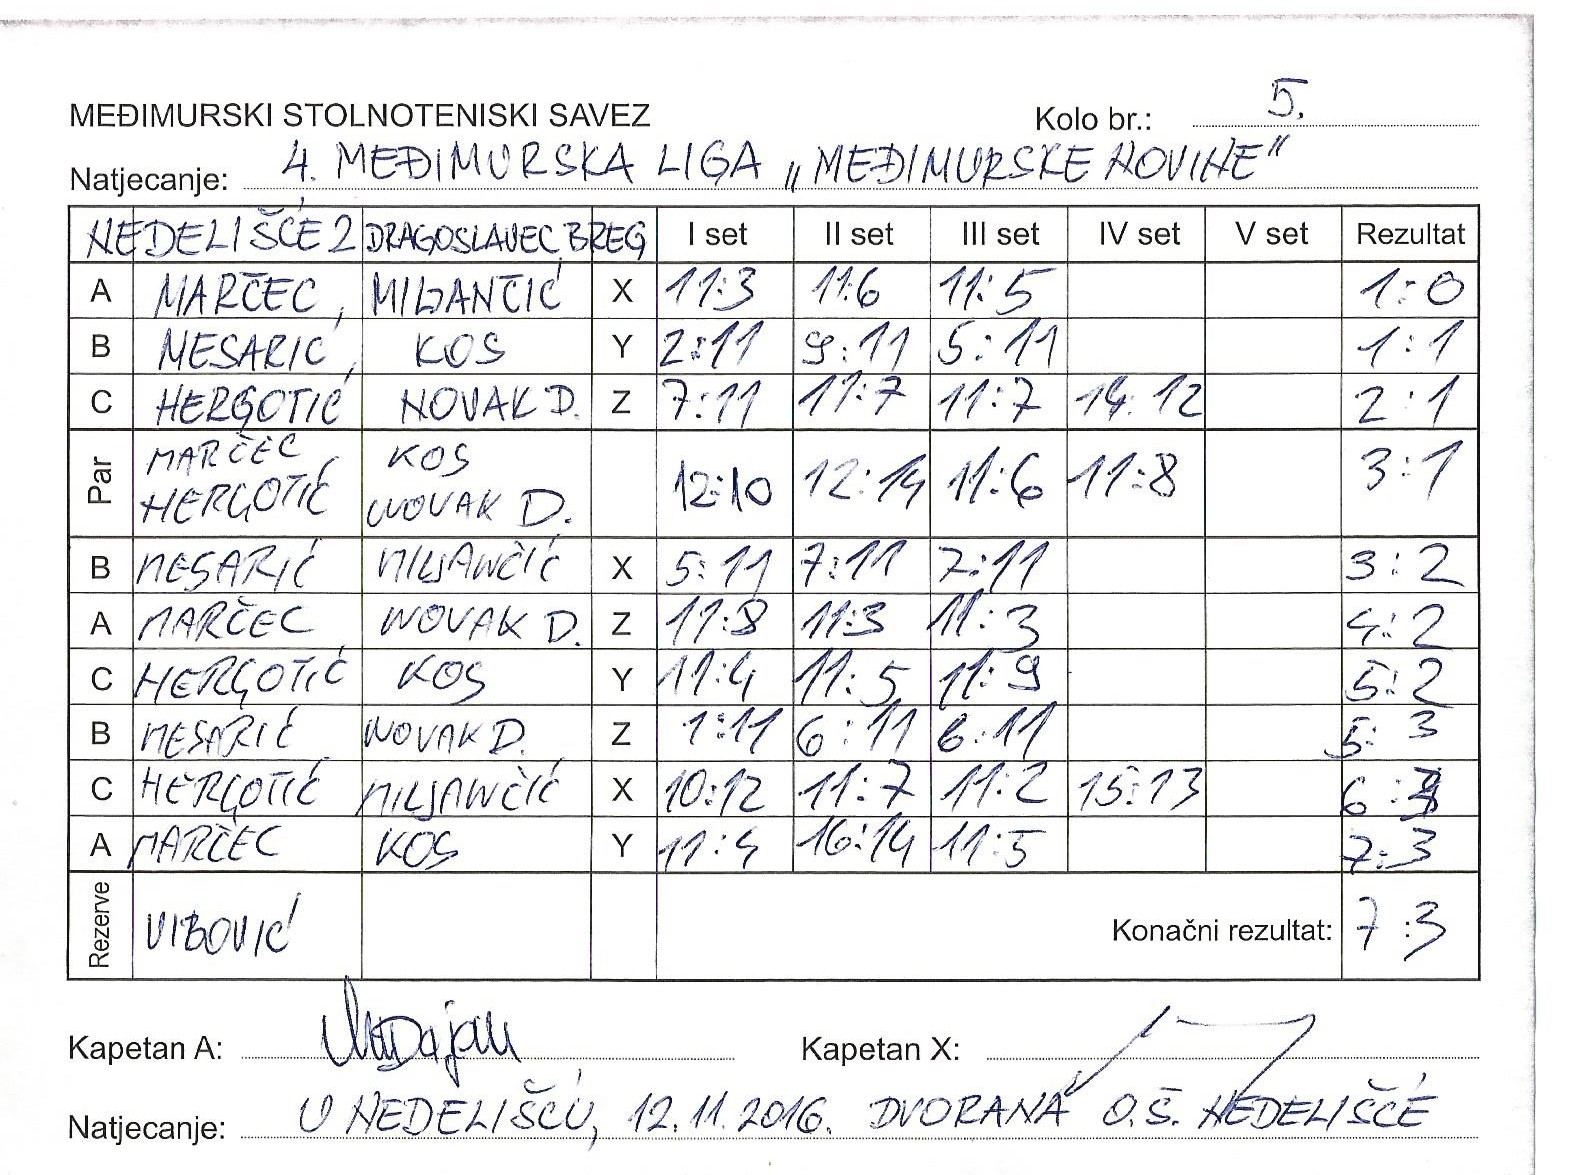 MEĐIMURSKI STOLNOTENISKI SAVEZ Kolo br.: 5.
Natjecanje: 4. MEĐIMURSKA LIGA „MEĐIMURSKE NOVINE"
NEDELIŠĆE 2 DRAGOSLAVEC BREG I set II set III set IV set V set Rezultat
A MARČEC, MILJANČIĆ X 11:3 11:6 11:5 1:0
B MESARIĆ, KOS Y 2:11 9:11 5:11 1:1
C HERGOTIĆ NOVAK D. Z 7:11 11:7 11:7 14:12 2:1
Par MARČEC KOS
HERGOTIĆ NOVAK D. 12:10 12:14 11:6 11:8 3:1
B MESARIĆ MILJANČIĆ X 5:11 7:11 7:11 3:2
A MARČEC NOVAK D. Z 11:8 11:3 11:3 4:2
C HERGOTIĆ KOS Y 11:4 11:5 11:9 5:2
B MESARIĆ NOVAK D. Z 1:11 6:11 6:11 5:3
C HERGOTIĆ MILJANČIĆ X 10:12 11:7 11:2 15:13 6:3
A MARČEC KOS Y 11:4 16:14 11:5 7:3
Rezerve VIBOVIĆ Konačni rezultat: 7:3
Kapetan A: Kapetan X:
Natjecanje: U NEDELIŠĆU, 12.11.2016. DVORANA O.Š. NEDELIŠĆE